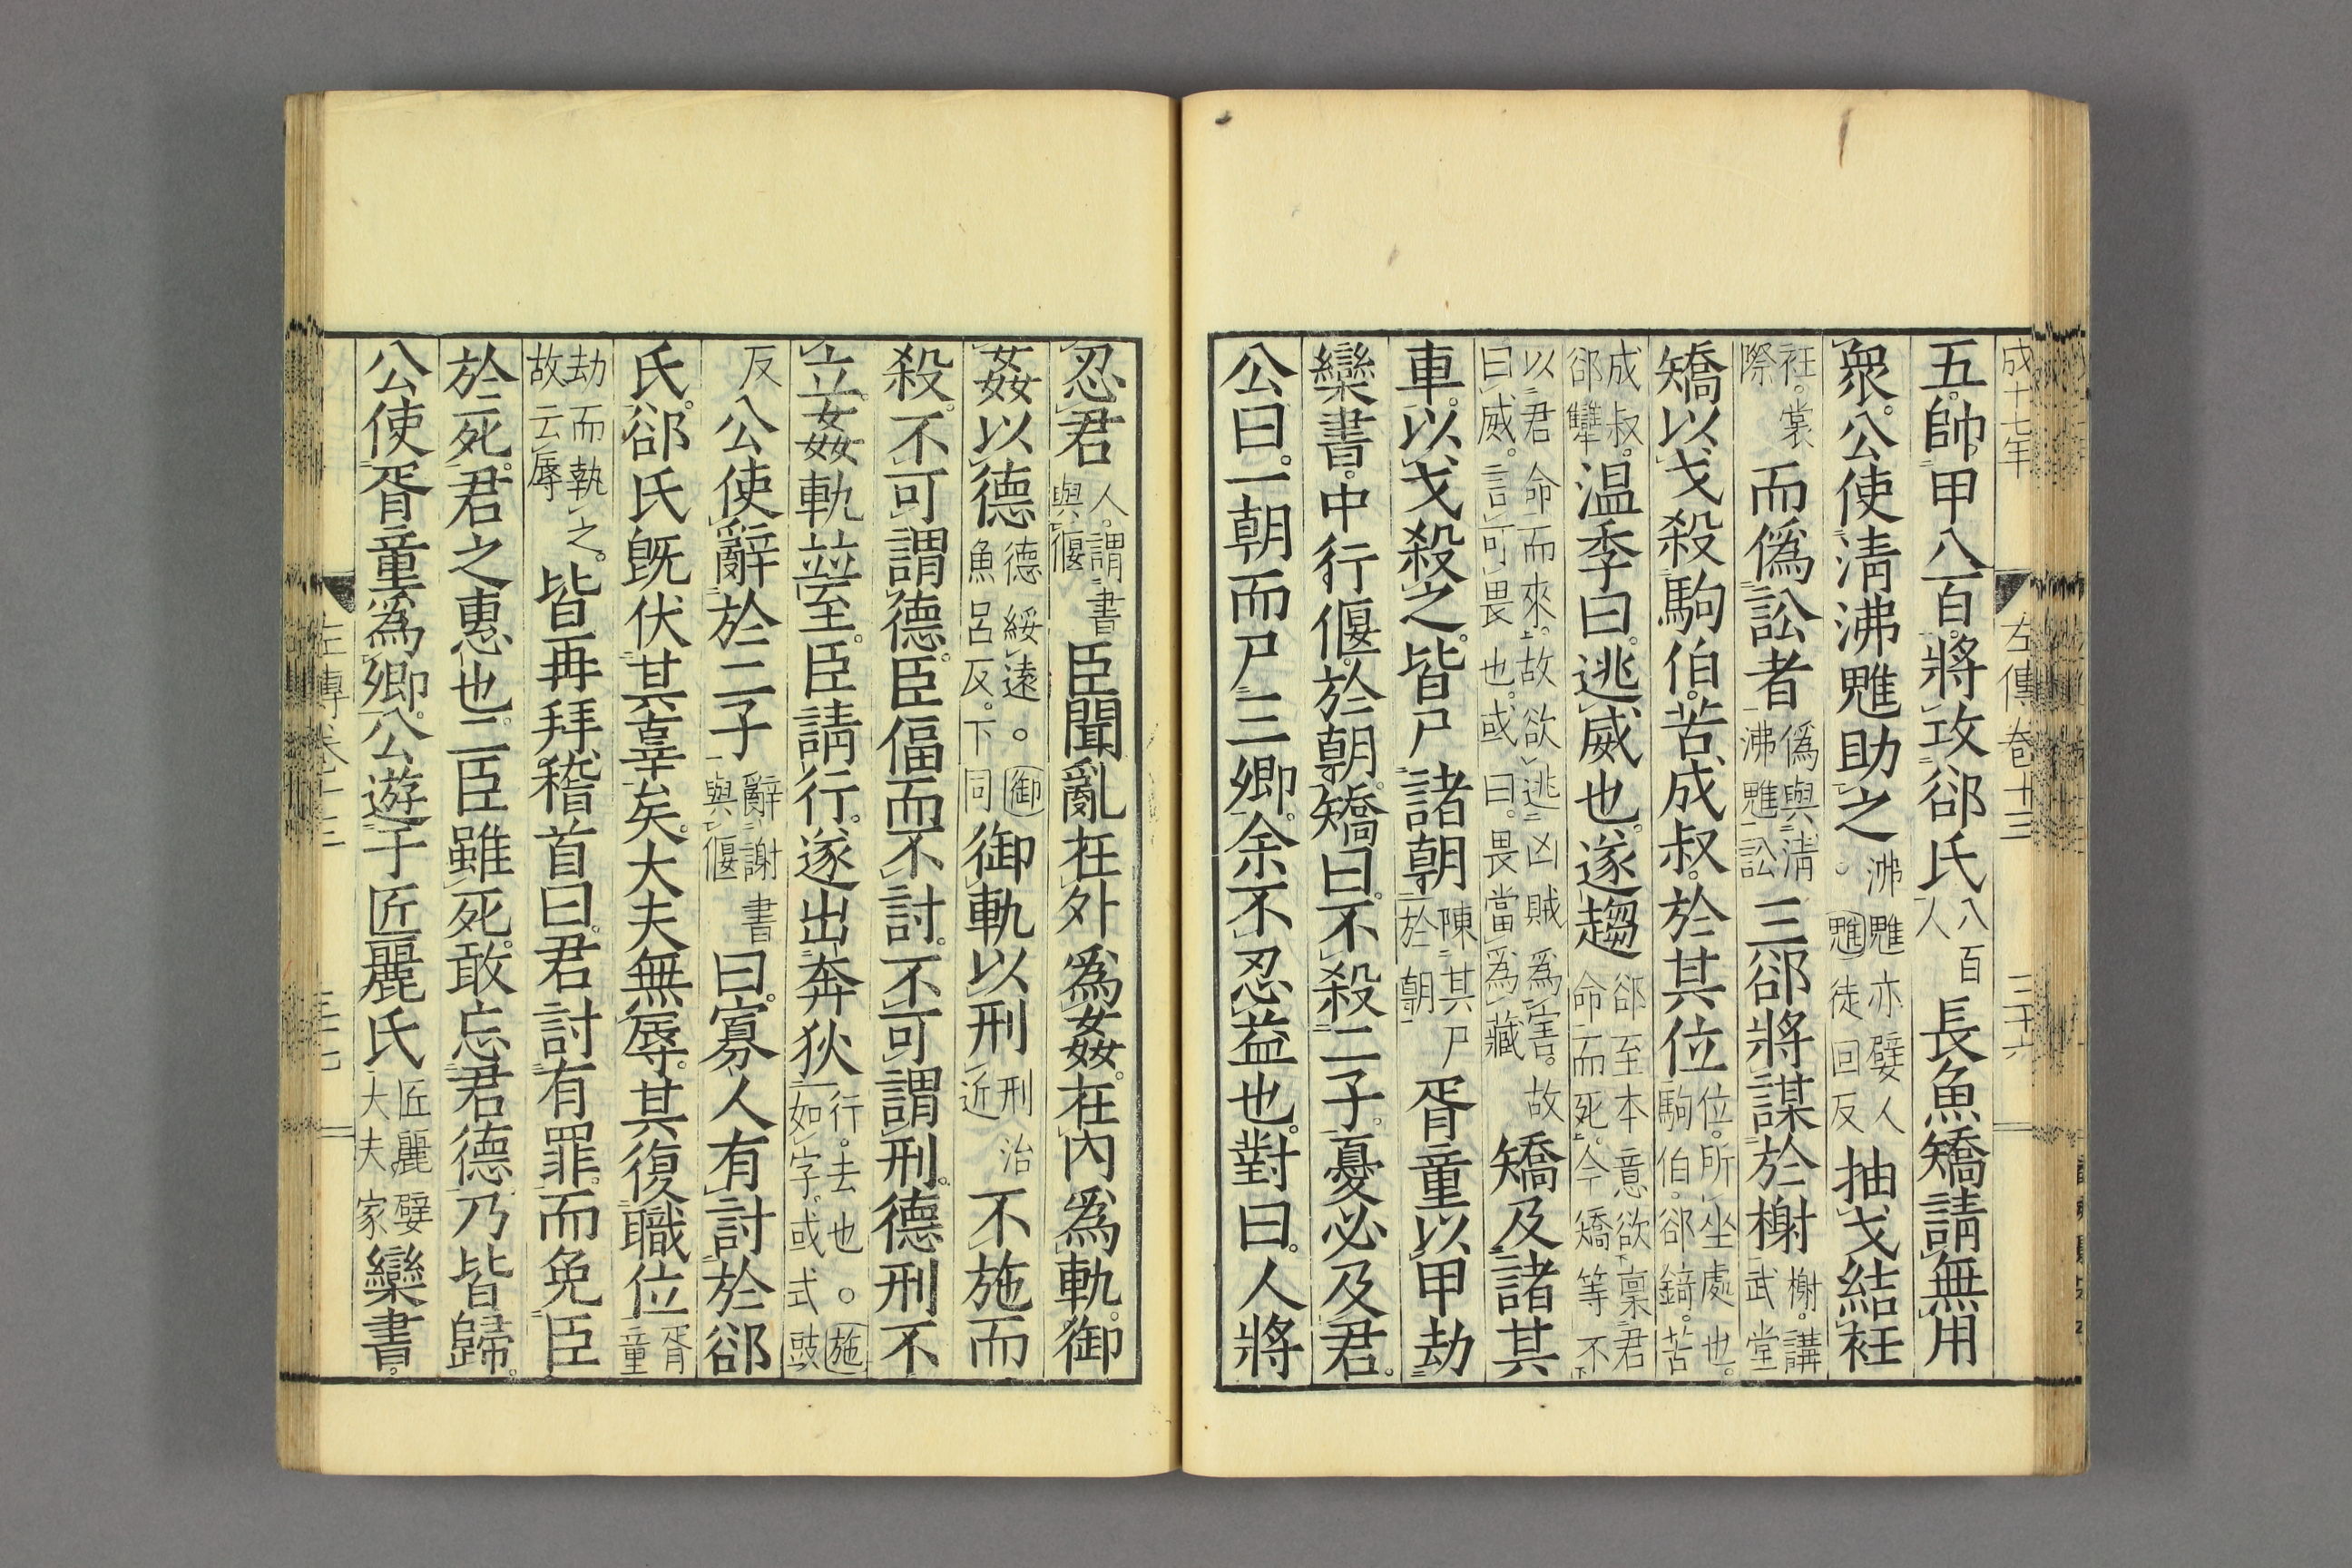 成十七年　左傳卷十三　三十六
五。帥甲八百。將攻郤氏八百人長魚矯請無用
衆。公使淸沸魋助之沸魋亦嬖人。○魋徒回反抽戈結衽
衽。裳際而僞訟者僞與淸沸魋訟三郤將謀於榭榭。講武堂
矯以戈殺駒伯。苦成叔。於其位位。所坐處也。駒伯。郤錡。苦
成叔。郤犫温季曰。逃威也。遂趨郤至本意欲稟君命而死。今矯等不
以君命而來。故欲逃凶賊爲害。故曰威。言可畏也。或曰。畏當爲藏矯及諸其
車。以戈殺之。皆尸諸朝陳其尸於朝胥童以甲劫
欒書。中行偃。於朝。矯曰。不殺二子。憂必及君。
公曰。一朝而尸三卿。余不忍益也。對曰。人將
忍君人。謂書與偃臣聞亂在外爲姦。在內爲軌。御
姦以德德綏遠。○御魚呂反。下同御軌以刑刑治近不施而
殺。不可謂德。臣偪而不討。不可謂刑。德刑不
立。姦軌竝至。臣請行。遂出奔狄行。去也。○施如字。或式豉
反公使辭於二子辭謝書與偃曰。寡人有討於郤
氏。郤氏旣伏其辜矣。大夫無辱。其復職位胥童
劫而執之。故云辱皆再拜稽首曰。君討有罪。而免臣
於死。君之惠也。二臣雖死。敢忘君德乃皆歸。
公使胥童爲卿。公遊于匠麗氏匠麗嬖大夫家欒書。
左傳卷十三　三十七